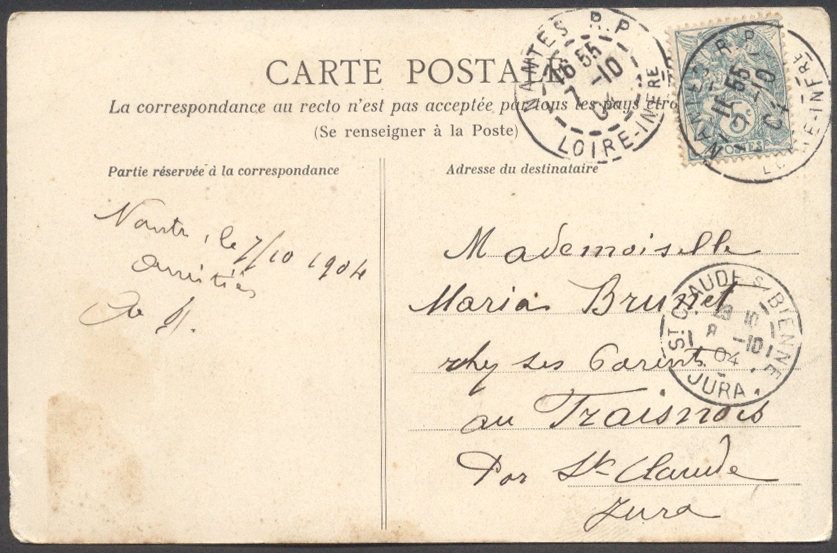 CARTE POSTALE
La correspondance au recto n'est pas acceptée par tous les pays étra
(Se renseigner à la Poste)
NANTES R.P
16 55
7 -10
04
LOIRE-INFRE
NANTES R.P
16 55
7 -10
04
LOIRE-INFRE
POSTES
Partie réservée à la correspondance
Adresse du destinataire
Nantes, le 7/10 1904
Amitiés
Mademoiselle
Maria Brunet
chez ses Parents
au
Par St Claude
Jura
ST CLAUDE S BIENNE
8 -10
04
JURA